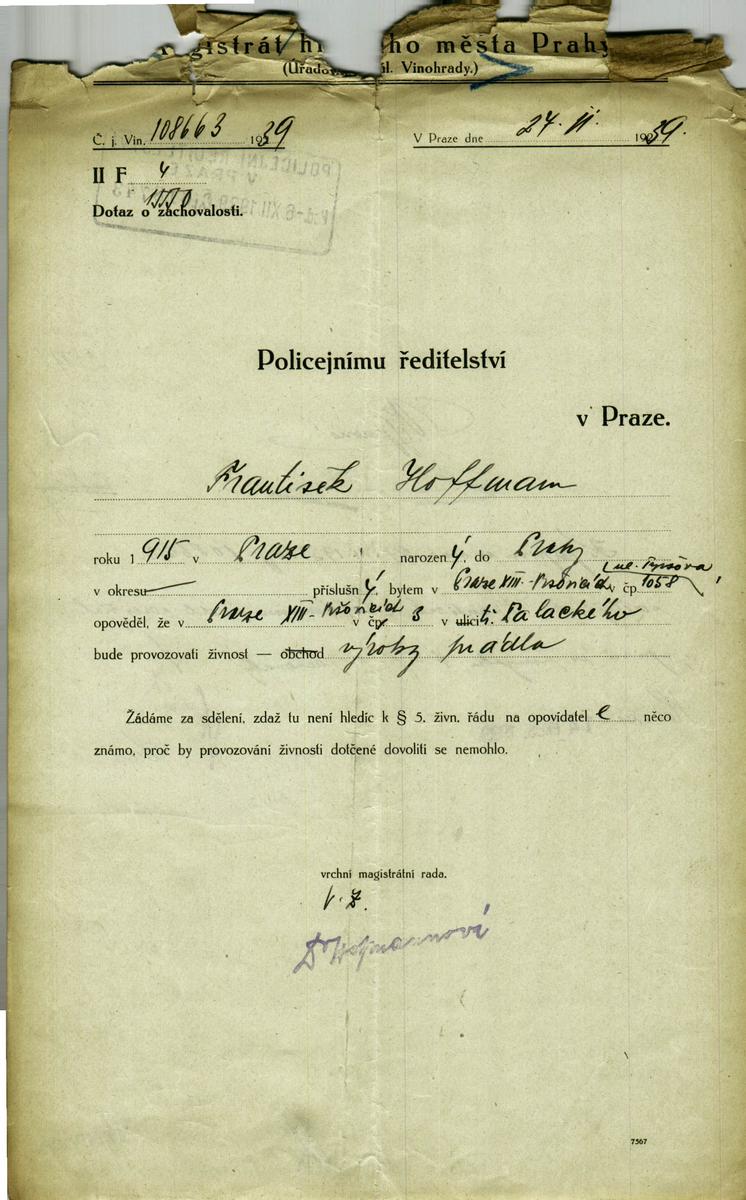 gistrát hl ho města Prahy
(Úřadov Vinohrady.)
Č. j. Vin. 108663 1939
V Praze dne 24. II. 1939.
II F 4
1550
Dotaz o zachovalosti.
Policejnímu ředitelství
v Praze.
František Hoffmann
roku 1915 v Praze narozený, do Prahy
v okresu příslušný, bytem v Praze XIII.- v čp. 1058
opověděl, že v Praze XIII- v čp 3 v ulici tř. Palackého
bude provozovati živnost — obchod výroby prádla
Žádáme za sdělení, zdaž tu není hledíc k § 5. živn. řádu na opovídatele něco
známo, proč by provozování živnosti dotčené dovoliti se nemohlo.
vrchní magistrátní rada.
v. z.
7567